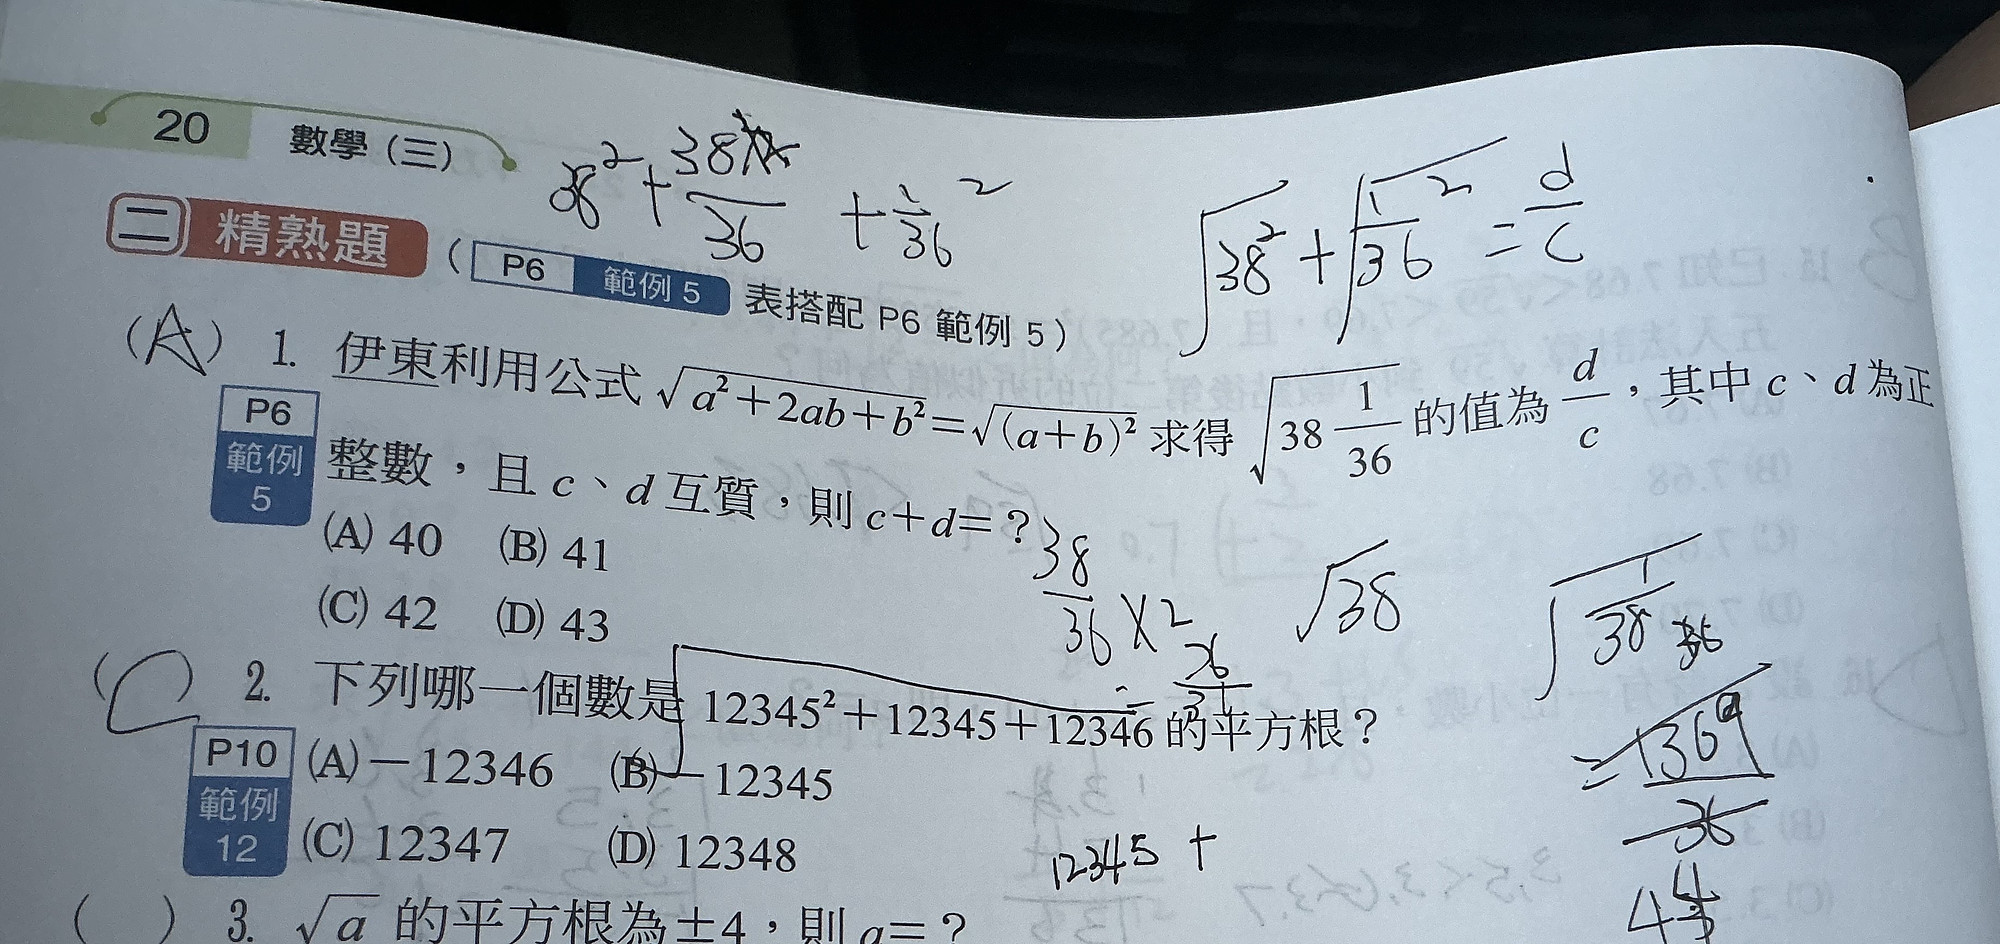 20 數學(三)
38² + 38/36 + 1/36²
√38² + √1/36² = d/c
二 精熟題 (P6 範例5 表搭配 P6 範例 5)
(A) 1. 伊東利用公式 √a²+2ab+b²=√(a+b)² 求得 √38 1/36 的值為 d/c，其中 c、d 為正
P6 範例 5
整數，且 c、d 互質，則 c+d=？
(A) 40 (B) 41
(C) 42 (D) 43
38/36 × 2
√38
(C) 2. 下列哪一個數是 12345²+12345+12346 的平方根？
P10 範例 12
(A) －12346 (B) －12345
(C) 12347 (D) 12348
12345 +
( ) 3. √a 的平方根為±4，則 a=？